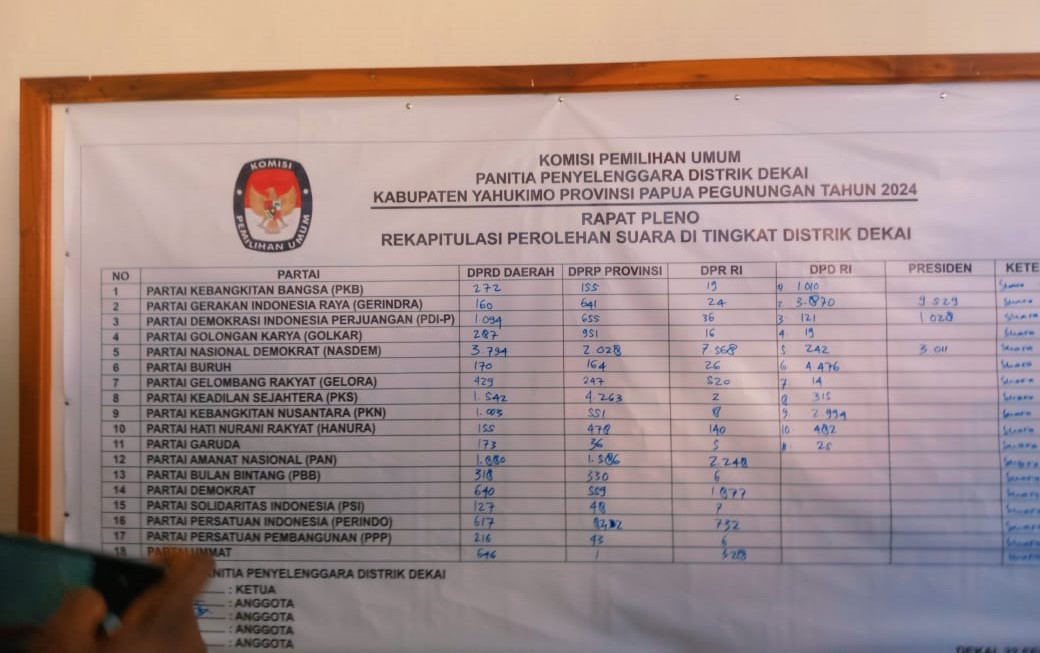 KOMISI
PEMILIHAN UMUM
KOMISI PEMILIHAN UMUM
PANITIA PENYELENGGARA DISTRIK DEKAI
KABUPATEN YAHUKIMO PROVINSI PAPUA PEGUNUNGAN TAHUN 2024
RAPAT PLENO
REKAPITULASI PEROLEHAN SUARA DI TINGKAT DISTRIK DEKAI
NO PARTAI DPRD DAERAH DPRP PROVINSI DPR RI DPD RI PRESIDEN KETE
1 PARTAI KEBANGKITAN BANGSA (PKB) 272 155 19 1 010
2 PARTAI GERAKAN INDONESIA RAYA (GERINDRA) 160 641 24 2 3.870 9 529
3 PARTAI DEMOKRASI INDONESIA PERJUANGAN (PDI-P) 1.094 655 36 3 121 1 028
4 PARTAI GOLONGAN KARYA (GOLKAR) 287 951 16 4 19
5 PARTAI NASIONAL DEMOKRAT (NASDEM) 3.794 2.028 7.568 5 242 3 011
6 PARTAI BURUH 170 164 26 6 4.476
7 PARTAI GELOMBANG RAKYAT (GELORA) 429 247 520 7 14
8 PARTAI KEADILAN SEJAHTERA (PKS) 1.542 4.263 2 8 315
9 PARTAI KEBANGKITAN NUSANTARA (PKN) 1.003 551 8 9 2.994
10 PARTAI HATI NURANI RAKYAT (HANURA) 155 478 140 10 482
11 PARTAI GARUDA 173 36 5 25
12 PARTAI AMANAT NASIONAL (PAN) 1.880 1.586 2.248
13 PARTAI BULAN BINTANG (PBB) 318 330 6
14 PARTAI DEMOKRAT 640 559 1 877
15 PARTAI SOLIDARITAS INDONESIA (PSI) 127 48 7
16 PARTAI PERSATUAN INDONESIA (PERINDO) 617 732
17 PARTAI PERSATUAN PEMBANGUNAN (PPP) 216 43 6
18 PARTAI UMMAT 646 1 528
ANITIA PENYELENGGARA DISTRIK DEKAI
: KETUA
: ANGGOTA
: ANGGOTA
: ANGGOTA
: ANGGOTA
DEKAI